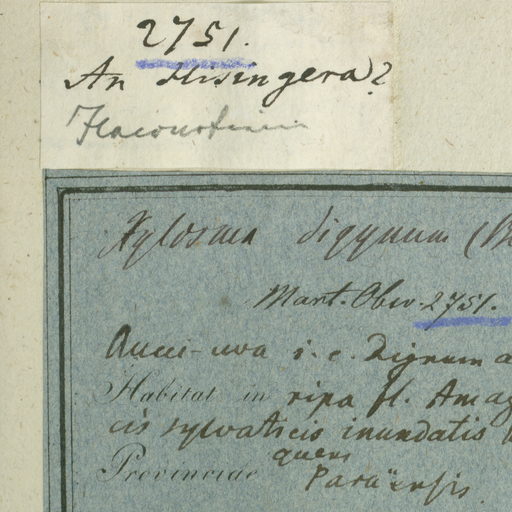 2751.
An Hisingera?
Xylosma digynum (Be
Mart. Obs. 2751.
i. e. Lignum a
Habitat in ripa fl. Amaz
cis sylvaticis inundatis
Provinciae Paraënsis